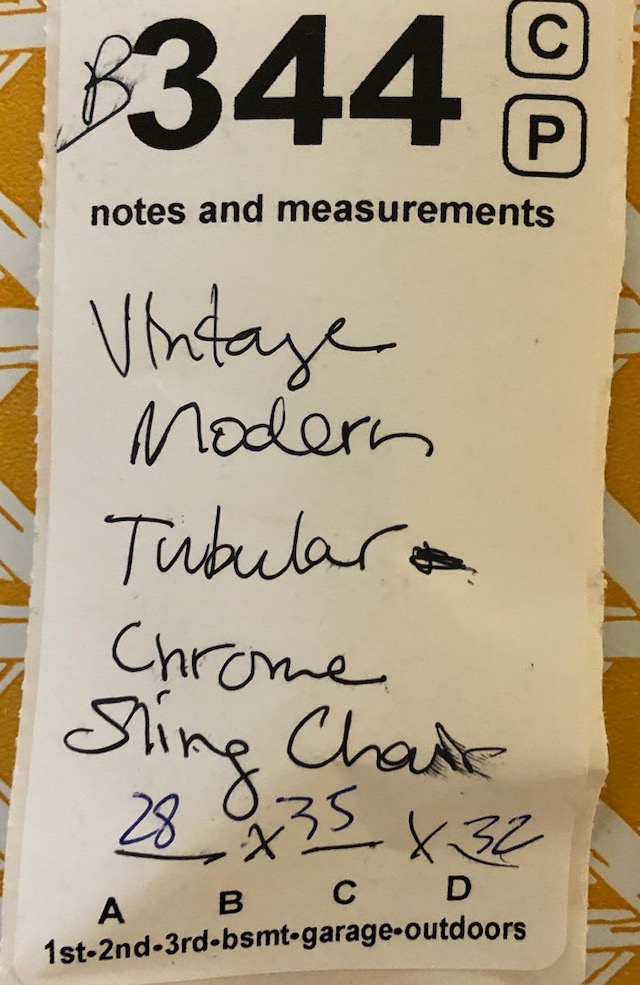 B344 C
P
notes and measurements
Vintage
Modern
Tubular
Chrome
Sling Chair
28 x 35 x 32
A B C D
1st-2nd-3rd-bsmt-garage-outdoors